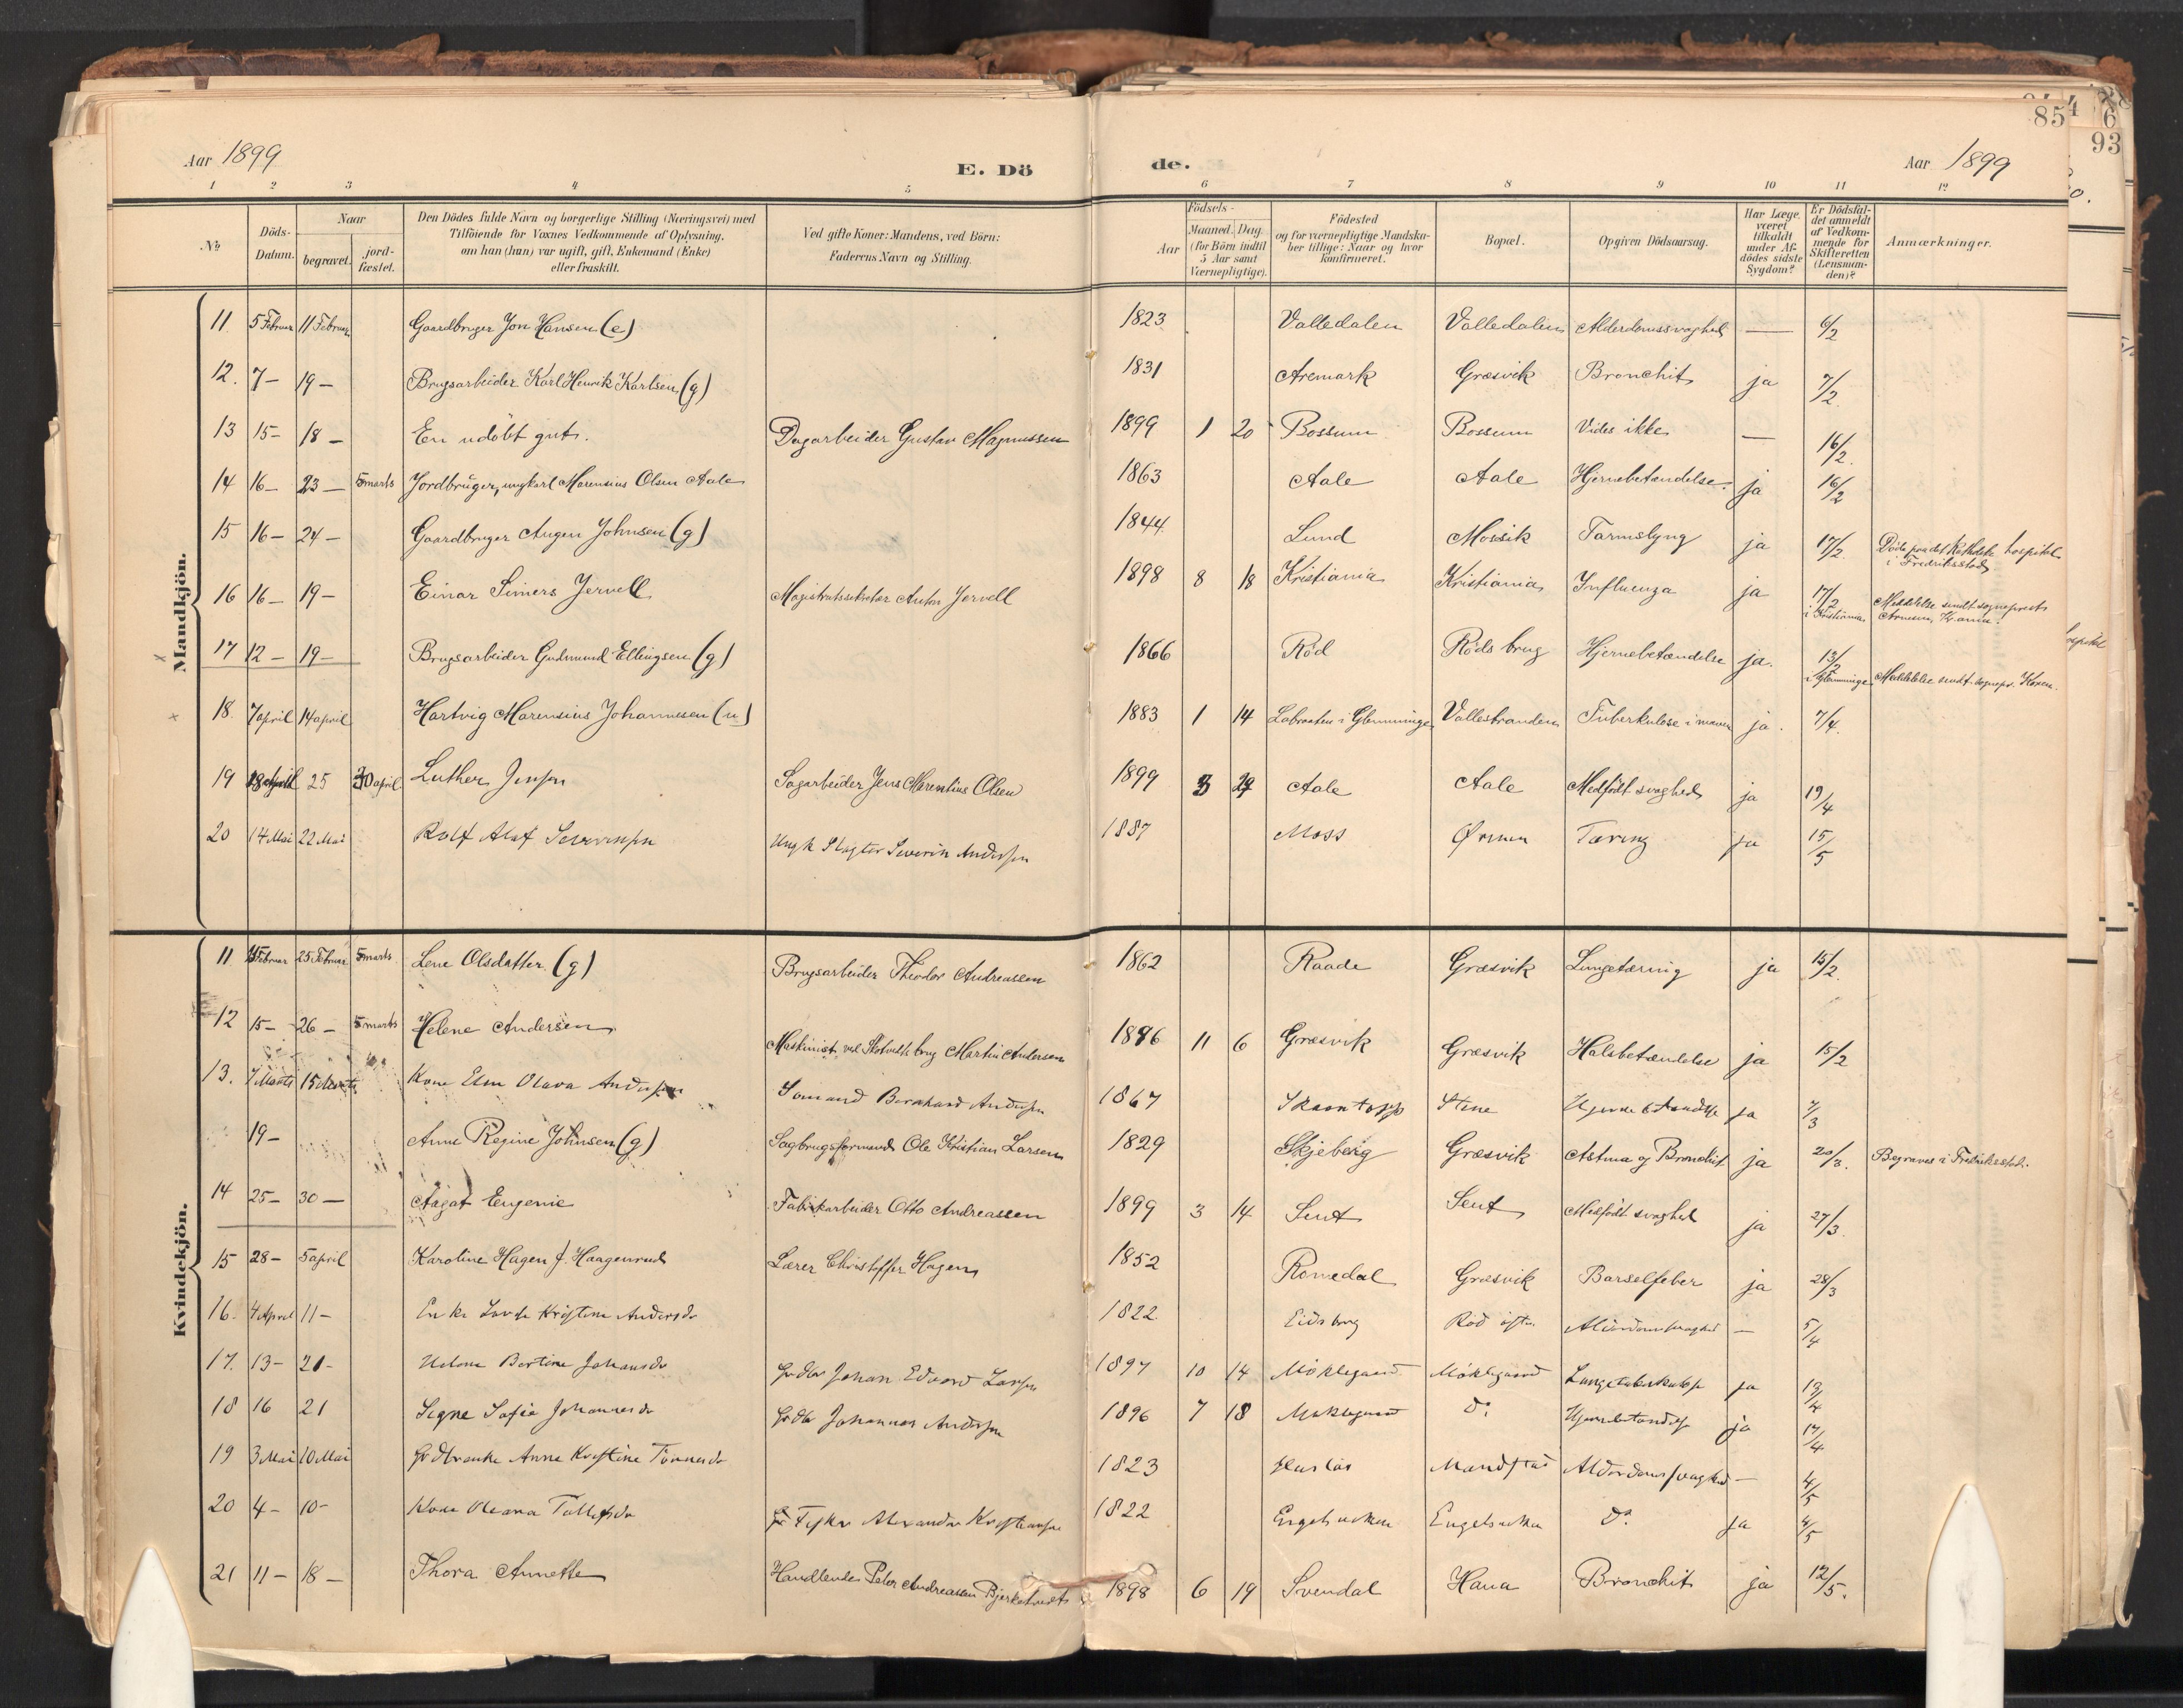 85
4
6
93
Aar 1899
E. Dö
de.
Aar 1899
1 2 3 4 5 6 7 8 9 10 11 12
No.
Döds-Datum.
Naar
begravet.
jord-fæstet.
Den Dödes fulde Navn og borgerlige Stilling (Næringsvei) med
Tilföiende for Voxnes Vedkommende af Oplysning,
om han (hun) var ugift, gift, Enkemand (Enke)
eller fraskilt.
Ved gifte Koner: Mandens, ved Börn:
Faderens Navn og Stilling.
Födsels-
Aar
Maaned. Dag.
(for Börn indtil
5 Aar samt
Værnepligtige).
Födested
og for værnepligtige Mandska-
ber tillige: Naar og hvor
konfirmeret.
Bopæl.
Opgiven Dödsaarsag.
Har Læge
været
tilkaldt
under Af-
dödes sidste
Sygdom?
Er Dödsfal-
det anmeldt
af Vedkom-
mende for
Skifteretten
(Lensman-
den)?
Anmærkninger.
Mandkjön.
11. 5 Februar 11 Februar Gaardbruger Jon Hansen (e) 1823 Valledalen Valledalen Alderdomssvaghed — 6/2
12. 7 — 19 — Brugsarbeider Karl Henrik Karlsen (g) 1831 Aremark Græsvik Bronchit ja 7/2
13 15 — 18 — En udöbt gut. Dagarbeider Gustav Magnussen 1899 1 20 Bossum Bossum Vides ikke — 16/2.
14 16 — 23 — 5 marts Jordbruger, ungkarl Marensius Olsen Aale 1863 Aale Aale Hjernebetændelse. ja 16/2
15 16 — 24 — Gaardbruger Augen Johnsen (g) 1844 Lund Mossik Tarmslyng ja 17/2. Döde paa det katholske hospital
i Fredriksstad
16 16 — 19 — Einar Simers Jervell Magistratssekretær Anton Jervell 1898 8 18 Kristiania Kristiania Influenza ja 17/2 i Kristiania Meddelelse sendt sogneprest
17 12 — 19 — Brugsarbeider Gudmund Ellingsen (g) 1866 Röd Röds brug Hjernebetændelse ja. 13/2 i Glemminge Meddelelse sendt sognepr.
18. 7 april 14 april Hartvig Marensius Johannesen (u) 1883 1 14 Labraaten i Glemminge Vallestranden Tuberkulose i maven ja. 7/4.
19 18 April 25 30 april Luther Jensen Sagarbeider Jens Marentius Olsen 1899 3 29 Aale Aale Medfödt svaghed ja 19/4
20 14 Mai 22 Mai Rolf Alaf Severinsen Ungk Slagter Severin Andersen 1887 Moss Ørmen Tæring ja 15/5
Kvindekjön.
11 15 Februar 25 Februar 5 marts. Lene Olsdatter (g) Brugsarbeider Theodor Andreassen 1862 Raade Græsvik Lungetæring ja 15/2.
12 15 — 26 — 5 marts Helene Andersen Maskinist ved brug Martin Andersen 1896 11 6 Græsvik Græsvik Halsbetændelse ja 15/2
13. 7 Marts 15 Marts Kone Elen Olava Andersen Sömand Bernhard Andersen 1867 Stene Hjernebetændelse ja 7/3
19 — Anne Regine Johnsen (g) Sagbrugsformand Ole Kristian Larsen 1829 Skjeberg Græsvik Astma og Bronchit ja 20/3. Begraves i Fredriksstad.
14 25 — 30 — Aagot Eugenie Fabrikarbeider Otto Andreassen 1899 3 14 Lunt Medfödt svaghed ja 27/3.
15 28 — 5 april Karoline Hagen f. Haagenrud Lærer Christoffer Hagen 1852 Romedal Græsvik Barselfeber ja 28/3
16. 4 April 11 — Enke Kristine Andersdr 1822 Eidsberg Röd Alderdomssvaghed — 5/4
17. 13 — 21 — Helene Bertine Johansdr Gdbr Johan Edvard Larsen 1897 10 14 Möklegaard Möklegaard Lungetuberkulose ja 13/4
18 16 21 Signe Sofie Johannesdr Gdbr Johannes Andersen 1896 7 18 Möklegaard do Hjernebetændelse ja 17/4
19 3 Mai 10 Mai Gdbrenke Anne Kristine Tönnesdr 1823 Alderdomssvaghed — 4/5
20 4 — 10 — Kone Oleana Tollefsdr Fisker Alexander Kristiansen 1822 Engelsviken Engelsviken do ja 4/5
21 11 — 18 — Thora Annette Handlende Peter Andreassen Bjerketvedt 1898 6 19 Svendal Hana Bronchit ja 12/5.